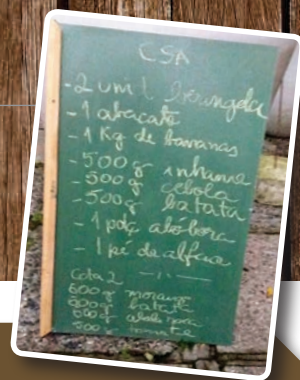 CSA
- 2 uni beringela
- 1 abacate
- 1 Kg de bananas
- 500 g inhame
- 500 g cebola
- 500 g batata
- 1 pdç abóbora
- 1 pé de alface
Cota 2
500 g morango
500 g batata
500 g abobrinha
500 g